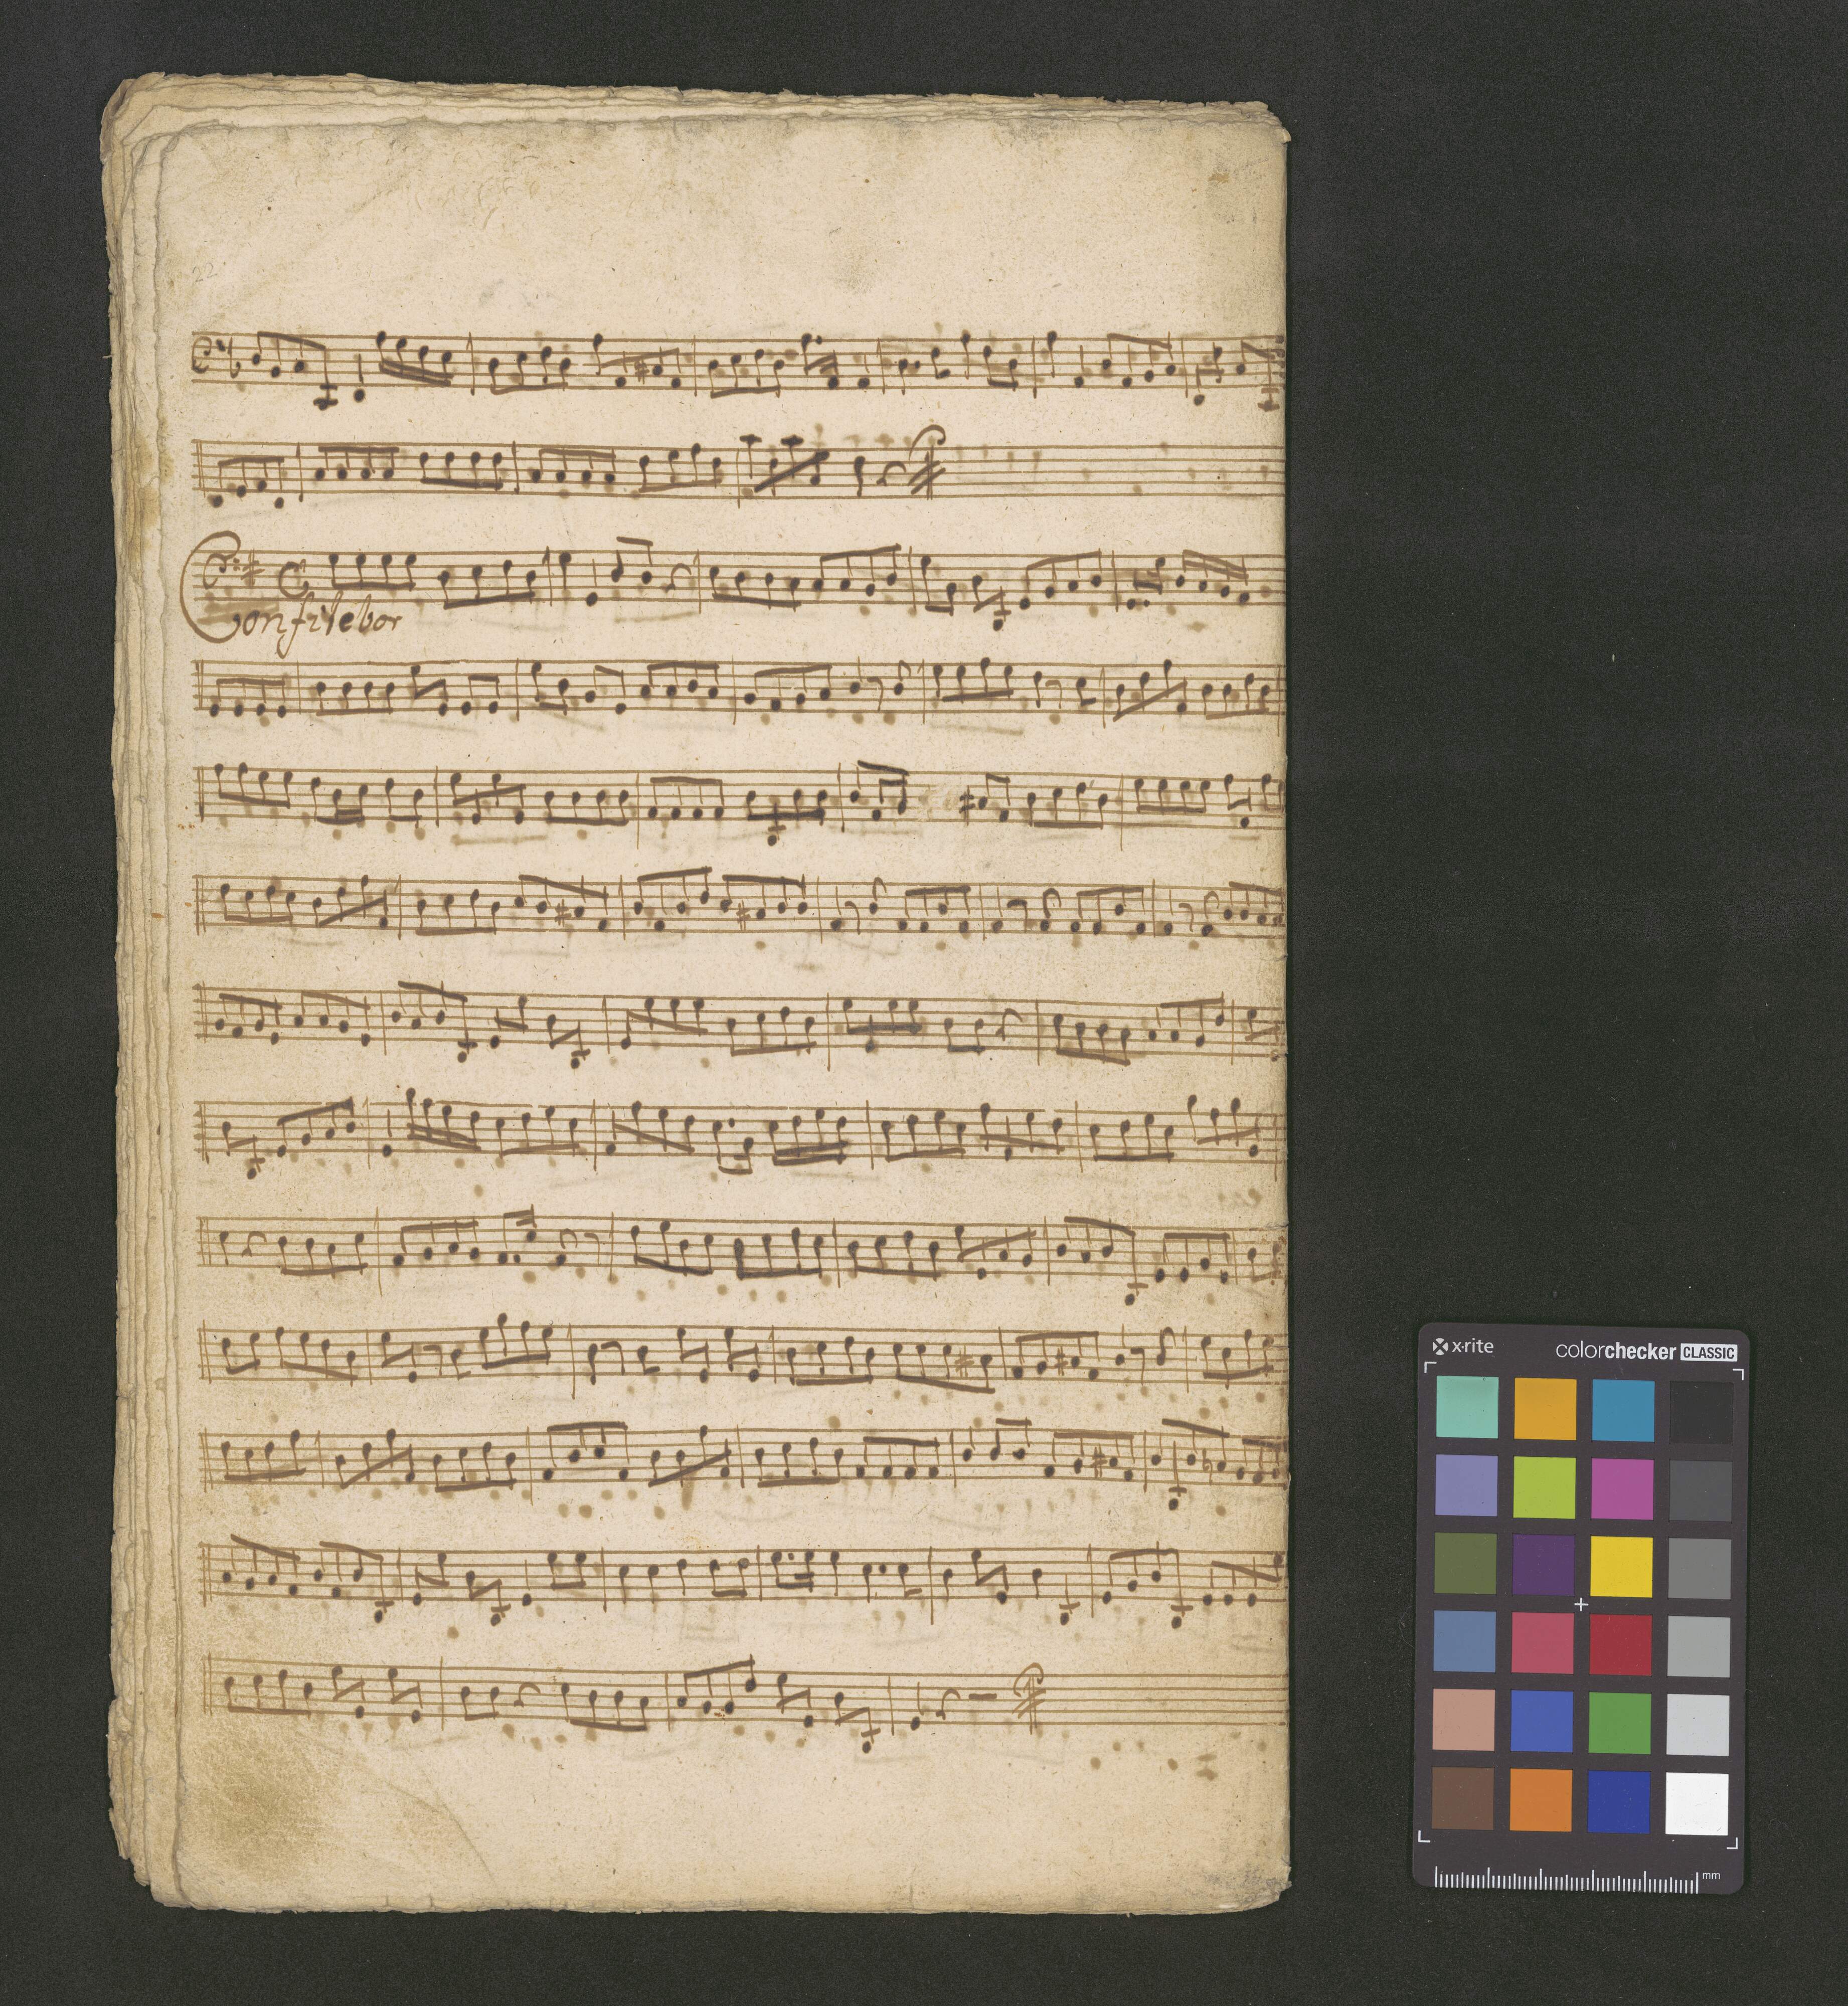 22
Confitebor
x-rite
colorchecker CLASSIC
mm